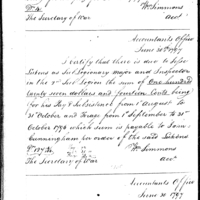 Wm Simmons
The Secretary of War acct.
Accountants Office
June 20th 1797
I certify that there is due to
as Sub Legionary Major and Inspector
in the 2d Sub Legion the sum of One hundred
twenty seven dollars and fourteen Cents being
for his Pay & Subsistence from 1st August to
31st October and Forage from 1st September to 31st
October 1794 which sum is payable to Saml
Cunningham in order of the said
Wm Simmons
The Secretary of War acct.
Accountants Office
June 20 1797